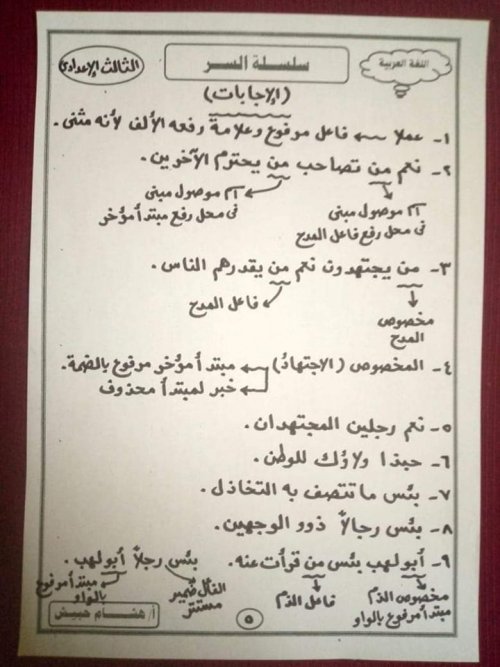 اللغة العربية
سلسلة السر
الثالث الإعدادى
(الإجابات)
١- عملا ← فاعل مرفوع وعلامة رفعه الألف لأنه مثنى.
٢- نعم من تصاحب من يحترم الآخرين.
اسم موصول مبنى
فى محل رفع فاعل المدح
اسم موصول مبنى
فى محل رفع مبتدأ مؤخر
٣- من يجتهدون نعم من يقدرهم الناس.
مخصوص
المدح
فاعل المدح
٤- المخصوص (الاجتهادُ) ← مبتدأ مؤخر مرفوع بالضمة.
← خبر لمبتدأ محذوف
٥- نعم رجلين المجتهدان.
٦- حبذا ولاؤك للوطن.
٧- بئس ما تتصف به التخاذل.
٨- بئس رجالاً ذوو الوجهين.
٩- أبو لهب بئس من قرأت عنه. بئس رجلاً أبو لهب.
مخصوص الذم
مبتدأ مرفوع بالواو
فاعل الذم
الفاعل ضمير
مستتر
مبتدأ مرفوع
بالواو
٥
أ/ هشام حبيش